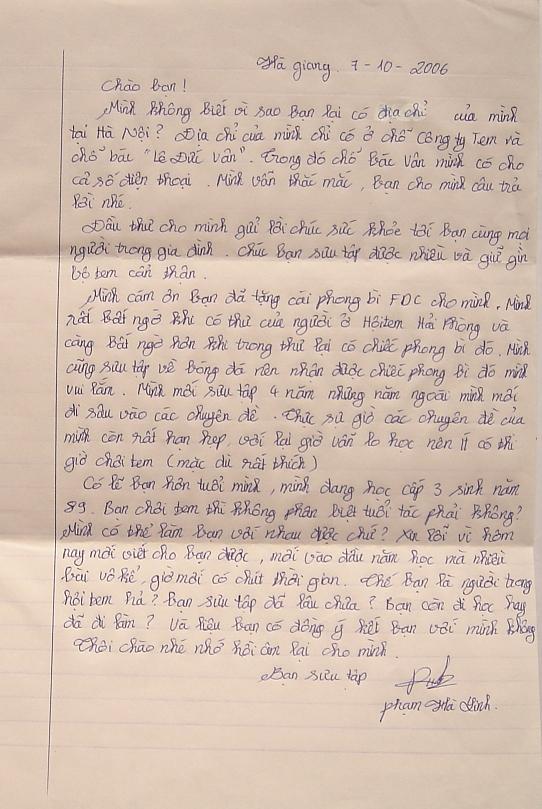 Hà giang. 7-10-2006
Chào bạn!
Mình không biết vì sao bạn lại có địa chỉ của mình
tại Hà Nội? Địa chỉ của mình chỉ có ở chỗ công ty Tem và
chỗ bác "Lê Đức Vân". Trong đó chỗ Bác Vân mình có cho
cả số điện thoại. Mình vẫn thắc mắc, Bạn cho mình câu trả
lời nhé.
Đầu thư cho mình gửi lời chúc sức khỏe tới Bạn cùng mọi
người trong gia đình. Chúc Bạn sưu tập được nhiều và giữ gìn
bộ tem cẩn thận.
Mình cám ơn Bạn đã tặng cái phong bì FDC cho mình. Mình
rất Bất ngờ khi có thư của người ở Hội tem Hải Phòng và
càng Bất ngờ hơn khi trong thư lại có chiếc phong bì đó. Mình
cũng sưu tập về bóng đá nên nhận được chiếc phong bì đó mình
vui lắm. Mình mới sưu tập 4 năm nhưng năm ngoái mình mới
đi sâu vào các chuyên đề. Thực sự giờ các chuyên đề của
mình còn rất hạn hẹp, với lại giờ vẫn lo học nên ít có thì
giờ chơi tem (mặc dù rất thích)
Có lẽ Bạn hơn tuổi mình, mình đang học cấp 3 sinh năm
89. Bạn chơi tem thì không phân biệt tuổi tác phải không?
Mình có thể làm bạn với nhau được chứ? Xin lỗi vì hôm
nay mới viết cho Bạn được, mới vào đầu năm học mà nhiều
bài vô kể, giờ mới có chút thời gian. Thế Bạn là người trong
hội tem hả? Bạn sưu tập đã lâu chưa? Bạn còn đi học hay
đã đi làm? Và liệu Bạn có đồng ý kết Bạn với mình không
Thôi chào nhé nhớ hồi âm lại cho mình.
Bạn sưu tập
phạm Hà